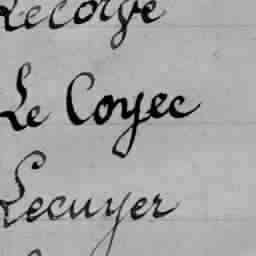 Lecorge
Le Coyec
Lecuyer